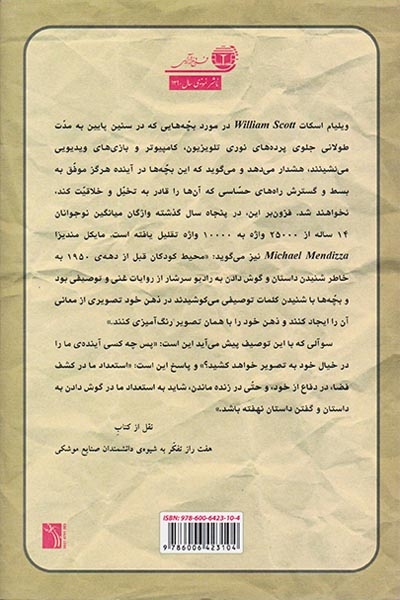 ناشر نمونه‌ی سال ۱۳۹۰
ویلیام اسکات William Scott در مورد بچّه‌هایی که در سنین پایین به مدّت
طولانی جلوی پرده‌های نوری تلویزیون، کامپیوتر و بازی‌های ویدیویی
می‌نشینند، هشدار می‌دهد و می‌گوید که این بچّه‌ها در آینده هرگز موفّق به
بسط و گسترش راه‌های حسّاسی که آن‌ها را قادر به تخیّل و خلاقیّت کند،
نخواهند شد. فزون‌بر این، در پنجاه سال گذشته واژگان میانگین نوجوانان
۱۴ ساله از ۲۵۰۰۰ واژه به ۱۰۰۰۰ واژه تقلیل یافته است. مایکل مندیزا
Michael Mendizza نیز می‌گوید: «محیط کودکان قبل از دهه‌ی ۱۹۵۰ به
خاطر شنیدن داستان و گوش دادن به رادیو سرشار از روایات غنی و توصیفی بود
و بچّه‌ها با شنیدن کلمات توصیفی می‌کوشیدند در ذهن خود تصویری از معانی
آن را ایجاد کنند و ذهن خود را با همان تصویر رنگ‌آمیزی کنند.»
سوآلی که با این توصیف پیش می‌آید این است: «پس چه کسی آینده‌ی ما را در
خیال خود به تصویر خواهد کشید؟» و پاسخ این است: «استعداد ما در کشف
فضا، در دفاع از خود، و حتّی در زنده ماندن، شاید به استعداد ما در گوش دادن به
داستان و گفتن داستان نهفته باشد.»
نقل از کتاب
هفت راز تفکّر به شیوه‌ی دانشمندان صنایع موشکی
ISBN: 978-600-6423-10-4
9 786006 423104